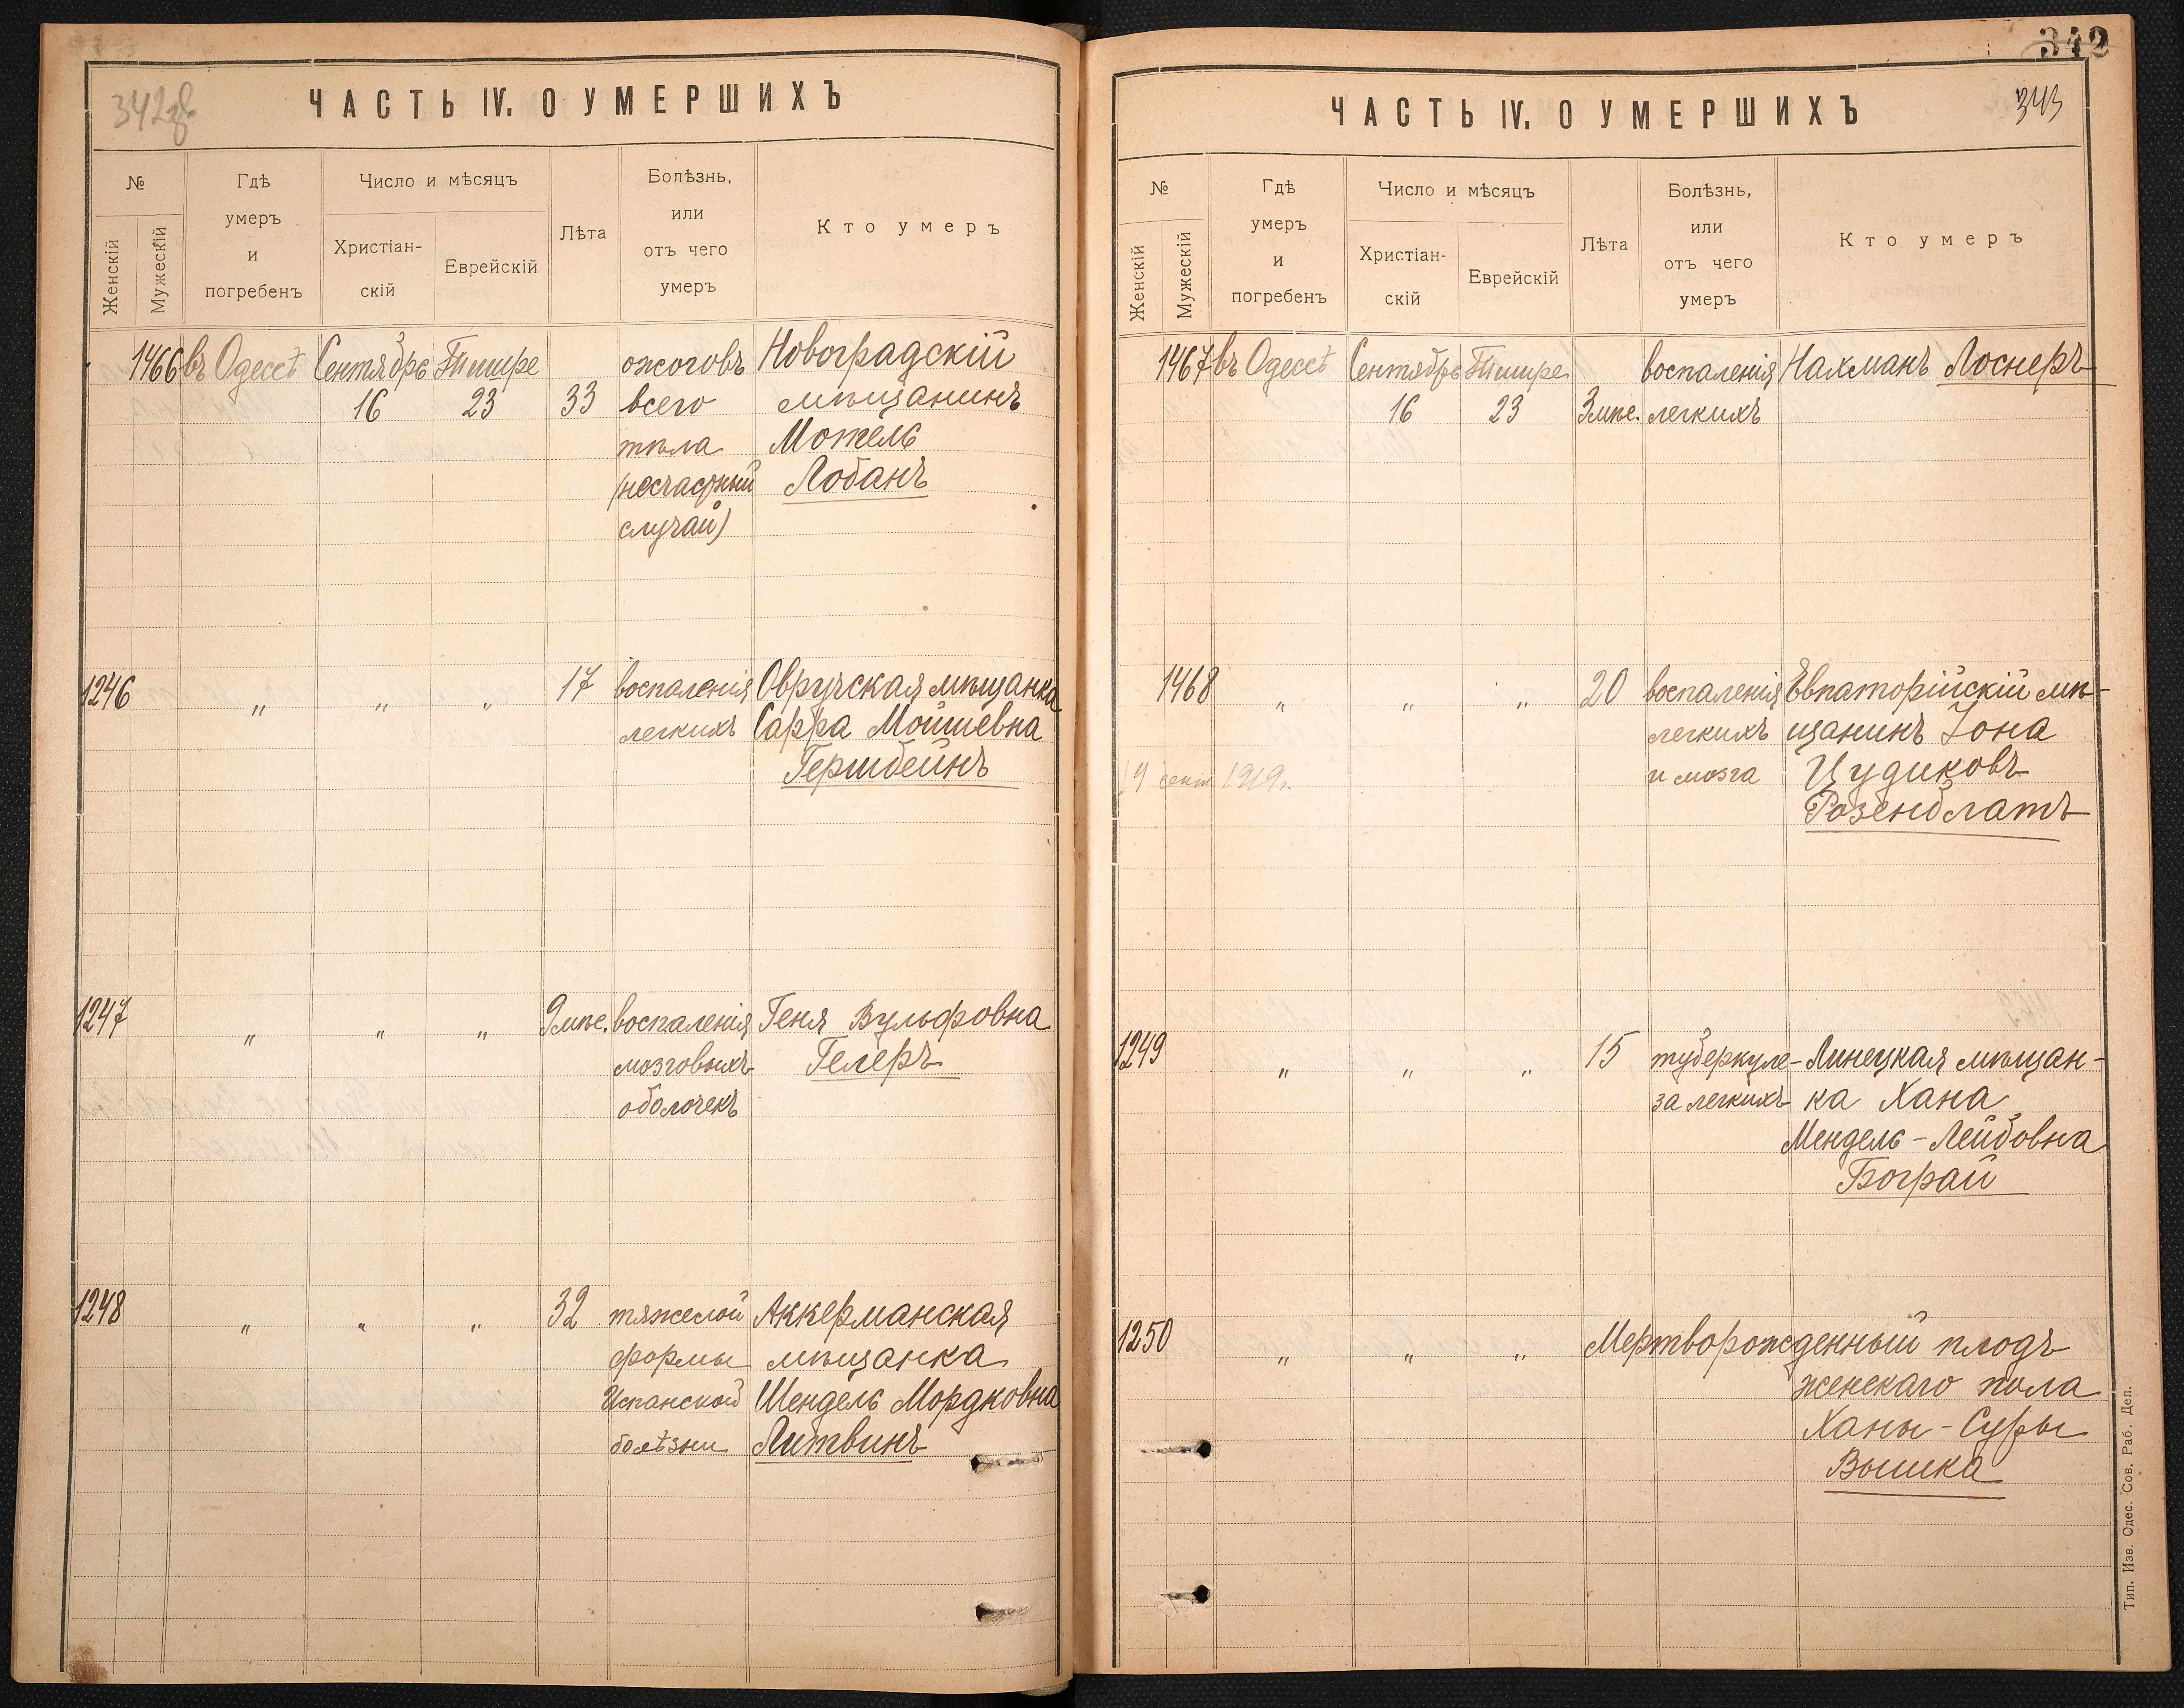 ЧАСТЬ IV. О УМЕРШИХЪ
№
Женскій
Мужескій
Гдѣ
умеръ
и
погребенъ
Число и мѣсяцъ
Христіан-
скій
Еврейскій
Лѣта
Болѣзнь,
или
отъ чего
умеръ
Кто умеръ
1466 въ Одессѣ Сентябрь Тишре ожоговъ Новоградскій
16 23 33 всего мѣщанинъ
тѣла Мотель
(несчастный Лобанъ
случай)
1246 " " " 17 воспаленія Овручская мѣщанка
легкихъ Сарра Мошевна
Герштбейнъ
1247 " " " 9 мѣс. воспаленія Геня Вульфовна
мозговыхъ Гелеръ
оболочекъ
1248 " " " 32 тяжелой Аккерманская
формы мѣщанка
Испанской Шендель Мордковна
болѣзни Литвинъ
342
ЧАСТЬ IV. О УМЕРШИХЪ
343
№
Женскій
Мужескій
Гдѣ
умеръ
и
погребенъ
Число и мѣсяцъ
Христіан-
скій
Еврейскій
Лѣта
Болѣзнь,
или
отъ чего
умеръ
Кто умеръ
1467 въ Одессѣ Сентябрь Тишре воспаленія Нахманъ Лоснеръ
16 23 3 мѣс. легкихъ
1468 " " " 20 воспаленія Евпаторійскій мѣ-
легкихъ щанинъ Іона
19 сент 1919г. и мозга Цудиковъ
Розенблатъ
1249 " " " 15 туберкуле- Линецкая мѣщан-
за легкихъ ка Хана
Мендель-Лейбовна
Бограй
1250 " " " Мертворожденный плодъ
женскаго пола
Ханы-Суры
Вышка
Тип. Изв. Одес. Сов. Раб. Деп.